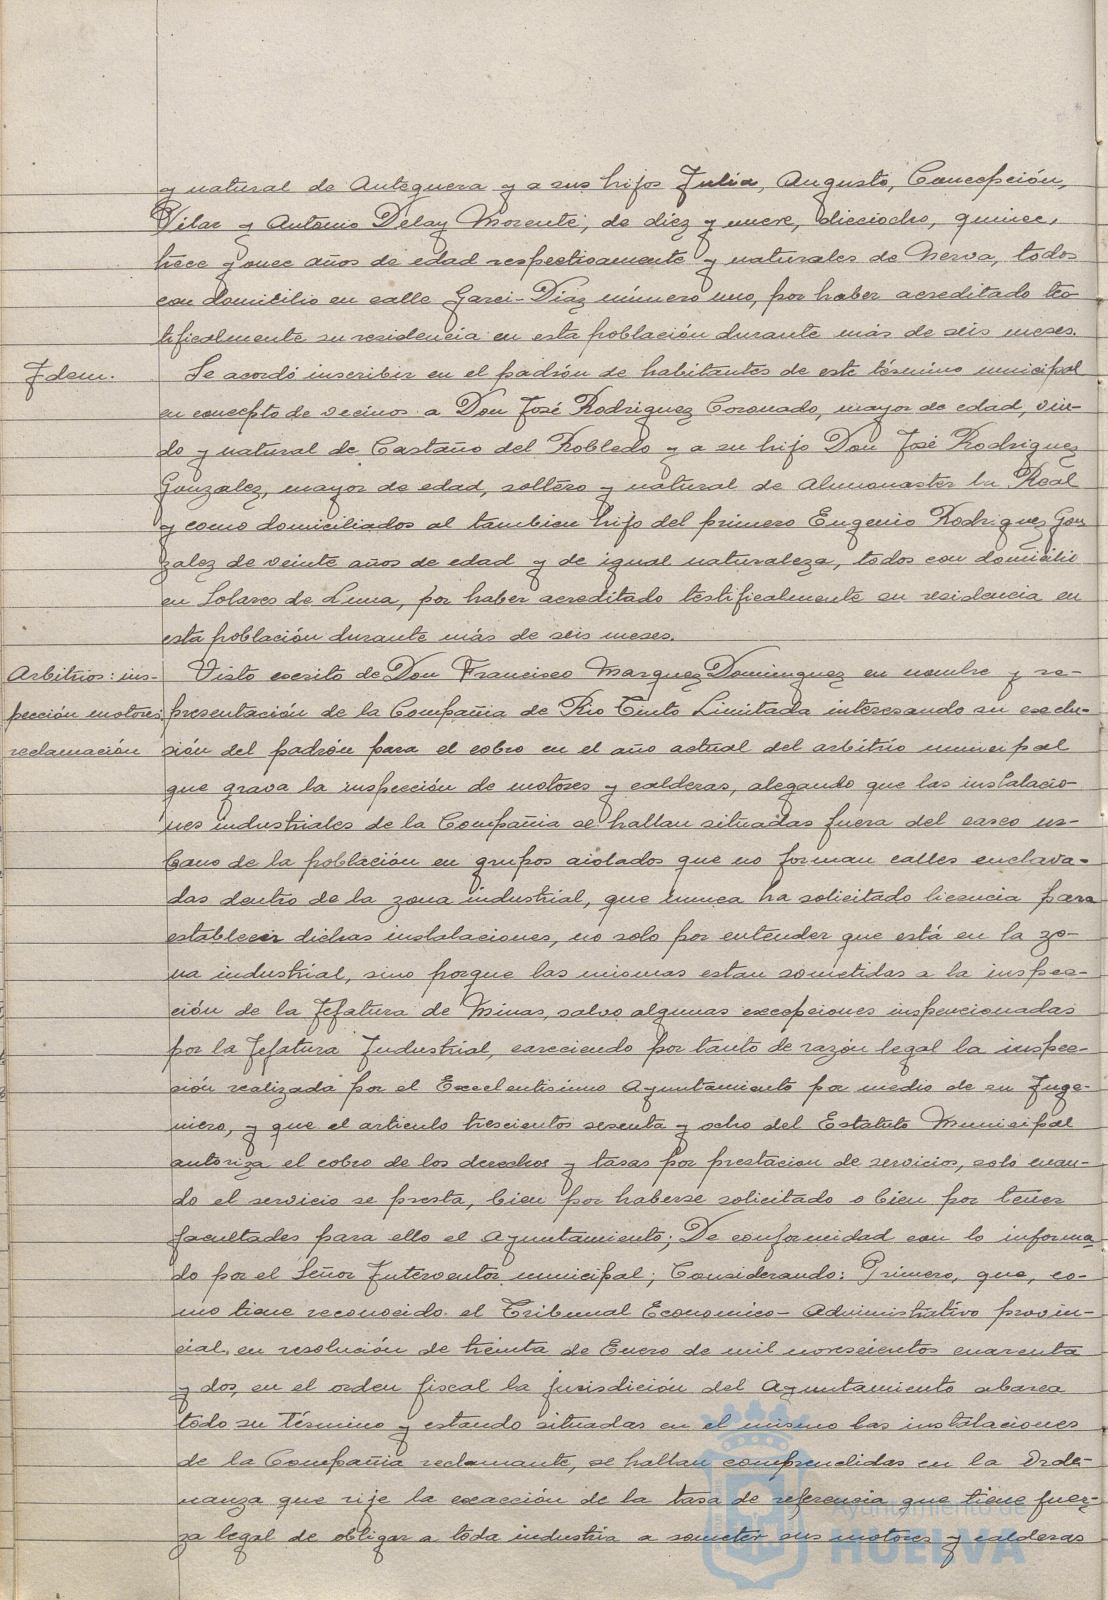 y natural de Antequera y a sus hijos Julia, Augusto, Concepción,
Pilar y Antonio Delay Morente; de diez y nueve, dieciocho, quince,
trece y once años de edad respectivamente y naturales de Nerva, todos
con domicilio en calle Garci-Diaz número uno, por haber acreditado tes-
tificalmente su residencia en esta población durante más de seis meses.
Idem.
Se acordó inscribir en el padrón de habitantes de este término municipal
en concepto de vecinos a Don José Rodriguez Coronado, mayor de edad, viu-
do y natural de Castaño del Robledo y a su hijo Don José Rodriguez
Gonzalez, mayor de edad, soltero y natural de Almonaster la Real
y como domiciliados al tambien hijo del primero Eugenio Rodriguez Gon
zalez de veinte años de edad y de igual naturaleza, todos con domicilio
en Solares de Luna, por haber acreditado testificalmente su residencia en
esta población durante más de seis meses.
Arbitrios: ins-
pección motores
reclamación
Visto escrito de Don Francisco Marquez Dominguez en nombre y re-
presentación de la Compañia de Rio Tinto Limitada interesando su exclu-
sión del padrón para el cobro en el año actual del arbitrio municipal
que grava la inspección de motores y calderas, alegando que las instalacio-
nes industriales de la Compañia se hallan situadas fuera del casco ur-
bano de la población en grupos aislados que no forman calles enclava-
das dentro de la zona industrial, que nunca ha solicitado licencia para
establecer dichas instalaciones, no solo por entender que está en la zo-
na industrial, sino porque las mismas estan sometidas a la inspec-
ción de la Jefatura de Minas, salvo algunas excepciones inspencionadas
por la Jefatura Industrial, careciendo por tanto de razón legal la inspec-
sión realizada por el Excelentisimo Ayuntamiento por medio de su Inge-
niero, y que el articulo trescientos sesenta y ocho del Estatuto Municipal
autoriza el cobro de los derechos y tasas por prestacion de servicios, solo cuan-
do el servicio se presta, bien por haberse solicitado o bien por tener
facultades para ello el Ayuntamiento; De conformidad con lo informa-
do por el Señor Interventor municipal; Considerando: Primero, que, co-
mo tiene reconocido el Tribunal Economico-Administrativo provin-
cial, en resolución de treinta de Enero de mil novescientos cuarenta
y dos, en el orden fiscal la jurisdición del Ayuntamiento abarca
todo su término y estando situadas en el mismo las instalaciones
de la Compañia reclamante, se hallan comprendidas en la Orde-
nanza que rije la exacción de la tasa de referencia que tiene fuer-
za legal de obligar a toda industria a someter sus motores y calderas
Ayuntamiento de
HUELVA